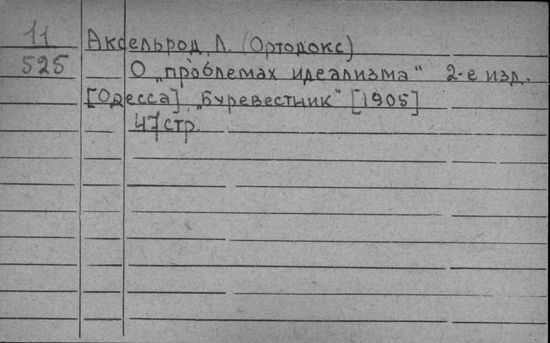 11 Аксельрод, Л. (Ортодокс)
525 О „проблемах идеализма“ 2-е изд.
[Одесса] „Буревестник“ [1905]
47 стр.